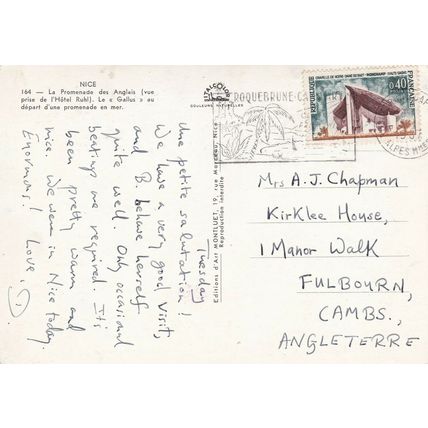 NICE
164 — La Promenade des Anglais (vue
prise de l'Hôtel Ruhl). Le « Gallus » au
départ d'une promenade en mer.
ITALCOLOR
COULEURS NATURELLES
ROQUEBRUNE-CA
CHAPELLE DE NOTRE-DAME DU HAUT - RONCHAMP - HAUTE-SAÔNE
0,40
REPUBLIQUE
FRANÇAISE
ALPES MMES
Editions d'Art MONTLUET, 19, rue Marceau, Nice
Reproduction interdite
Tuesday
Une petite salutation!
We have a very good visit,
and B. behave herself
quite well. Only occasional
beating are required. Its
been pretty warm and
nice. We were in Nice today.
Enormous! Love, D.
Mrs A.J. Chapman
Kirklee House,
1 Manor Walk
FULBOURN,
CAMBS.,
ANGLETERRE